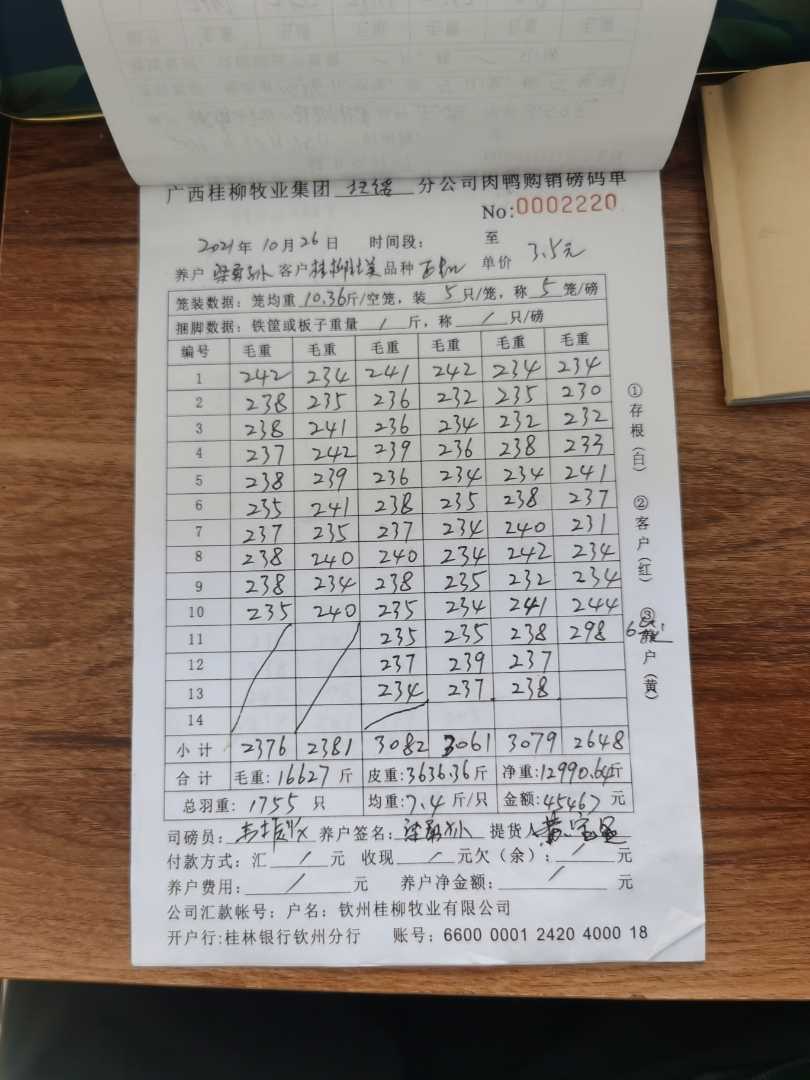 广西桂柳牧业集团 扶绥 分公司肉鸭购销磅码单
No:0002220
2021年10月26日 时间段： 至
养户 客户桂柳 品种 单价 3.5元
笼装数据：笼均重 10.36斤/空笼，装 5 只/笼，称 5 笼/磅
捆脚数据：铁筐或板子重量 / 斤，称 / 只/磅
编号 毛重 毛重 毛重 毛重 毛重 毛重
1 242 234 241 242 234 234
2 238 235 236 232 235 230
3 238 241 236 234 232 232
4 237 242 239 236 238 233
5 238 239 236 234 234 241
6 235 241 238 235 238 237
7 237 235 237 234 240 231
8 238 240 240 234 242 234
9 238 234 238 235 232 234
10 235 240 235 234 241 244
11 235 235 238 298
12 237 239 237
13 234 237 238
14
小计 2376 2381 3082 3061 3079 2648
合计 毛重:16627斤 皮重:3636.36斤 净重:12990.64斤
总羽重: 1755 只 均重:7.4 斤/只 金额:45467 元
司磅员: 养户签名: 提货人
付款方式：汇 / 元 收现 / 元欠（余）: / 元
养户费用: / 元 养户净金额: / 元
公司汇款帐号：户名：钦州桂柳牧业有限公司
开户行:桂林银行钦州分行 账号：6600 0001 2420 4000 18
①存根（白） ②客户（红） ③ 户（黄）